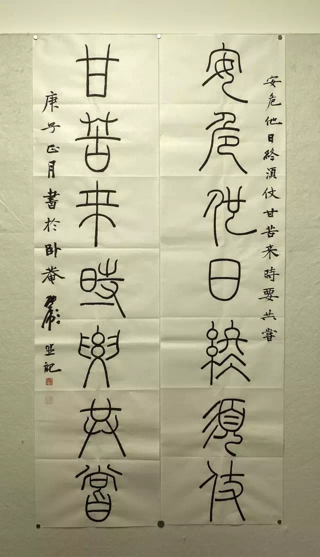 安危他日終須仗甘苦来時要共嘗
安危他日終須仗
甘苦來時要共嘗
庚子正月書於卧菴
並記